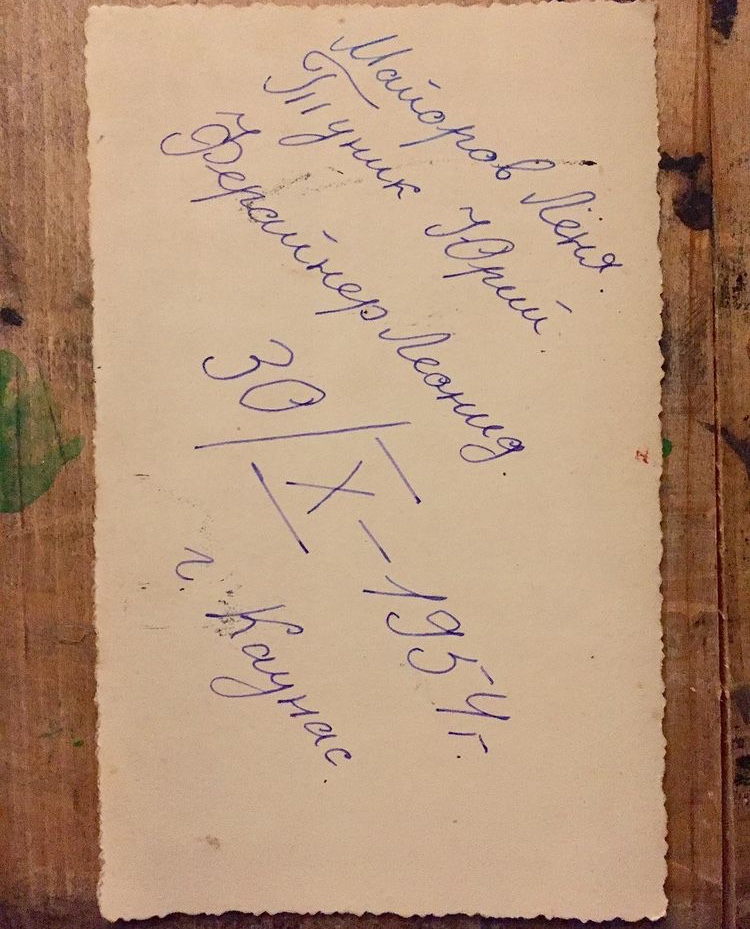 Майоров Лёня.
Туник Юрий.
Ферайнер Леонид.
30/X-1954г.
г. Каунас.